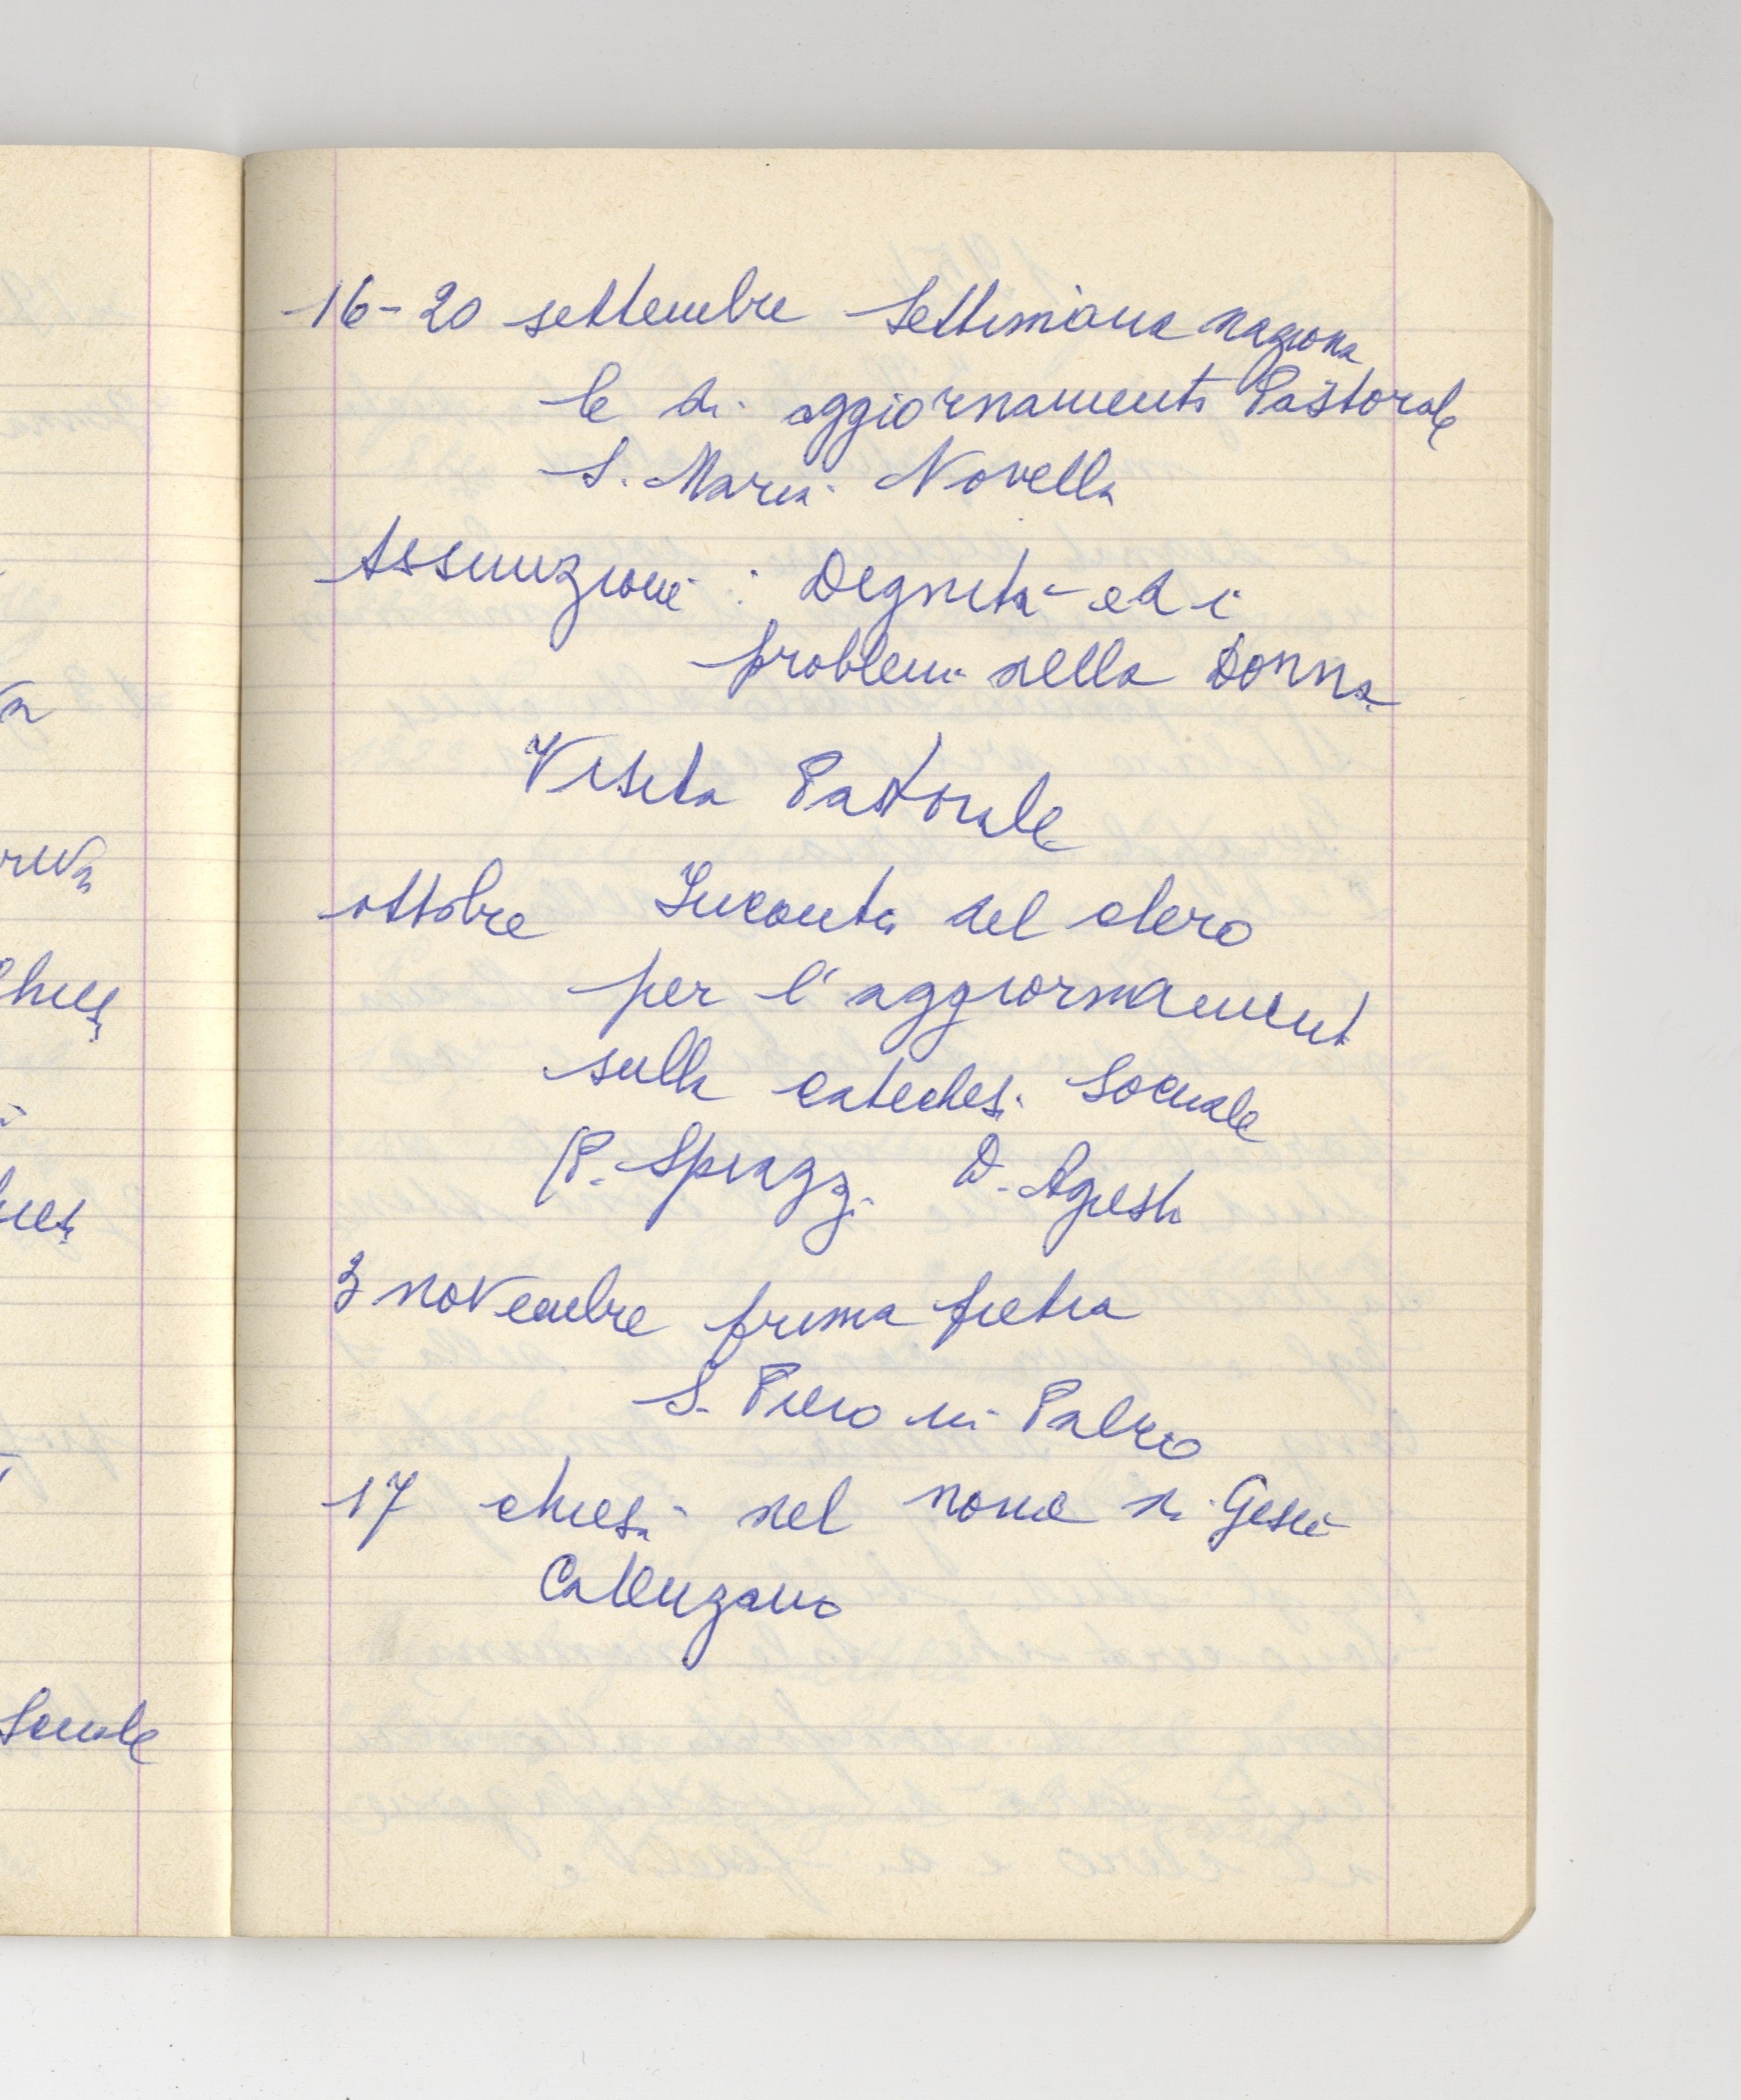 16-20 settembre Settimana naziona
le di aggiornamento Pastorale
S. Maria Novella
Assunzione : Dignità ed i
problemi della Donna
Visita Pastorale
ottobre Incontri del clero
per l'aggiornament
sulla catechesi Sociale
P. Spiazzi D. Agresti
3 novembre prima pietra
S. Piero in Palco
17 chiesa nel nome di Gesù
Calenzano
Sociale